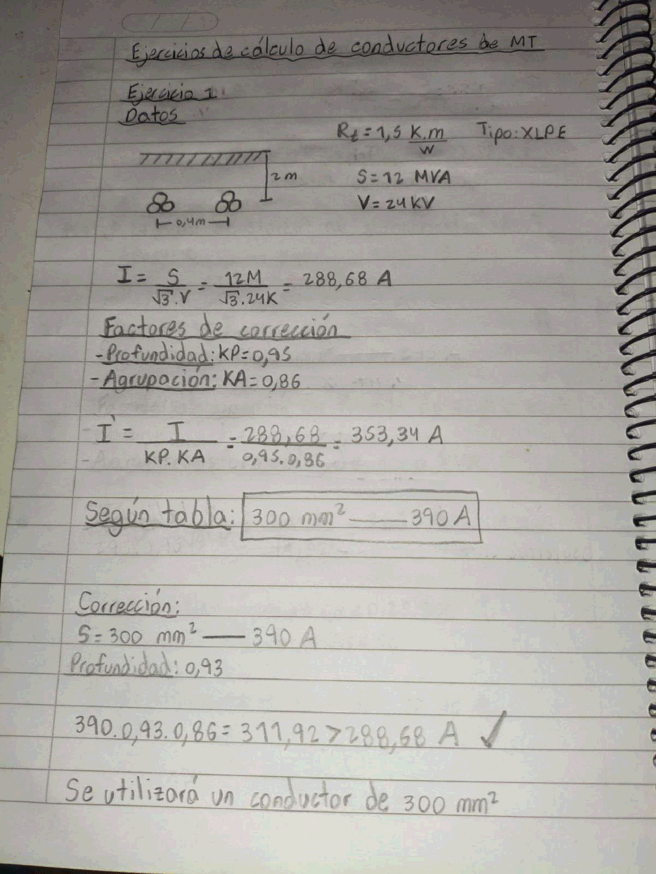 Ejercicios de cálculo de conductores de MT
Ejercicio 1:
Datos
Rt = 1,5 K.m/W Tipo: XLPE
2 m
S = 12 MVA
V = 24 KV
0,4m
I = S/√3.V = 12M/√3.24K = 288,68 A
Factores de corrección
-Profundidad: KP=0,95
-Agrupación: KA=0,86
I' = I/KP.KA = 288,68/0,95.0,86 = 353,34 A
Según tabla: 300 mm² — 390 A
Corrección:
S=300 mm² — 390 A
Profundidad: 0,93
390.0,93.0,86 = 311,92 > 288,68 A ✓
Se utilizará un conductor de 300 mm²